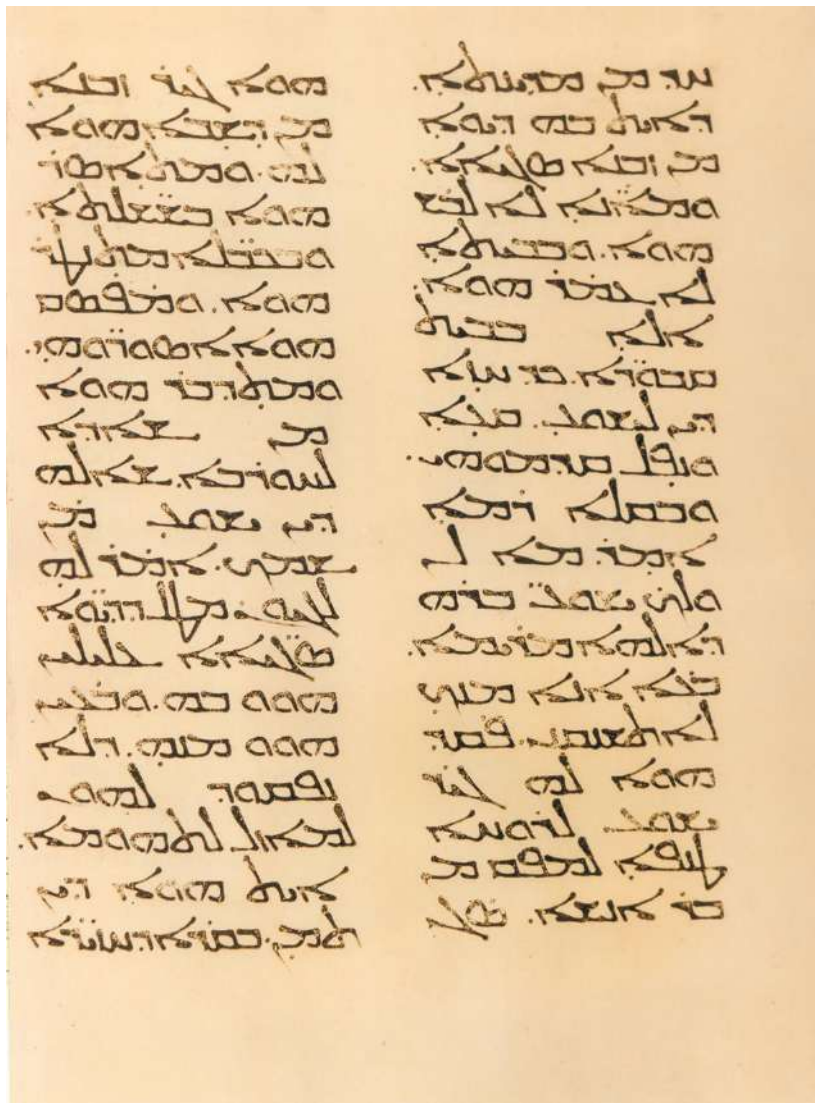 ܚܕ ܡܢ ܡܕܝܢܬܐ.
ܕܐܝܬ ܒܗ ܕܝܘܐ
ܡܢ ܙܒܢܐ ܣܓܝܐܐ.
ܘܡܐܢ̈ܐ ܠܐ ܠܒܫ
ܗܘܐ. ܘܒܒܝܬܐ
ܠܐ ܥܡܪ ܗܘܐ.
ܐܠܐ ܒܒܝܬ
ܩܒܘܪ̈ܐ. ܟܕ ܚܙܐ
ܕܝܢ ܠܝܫܘܥ. ܩܥܐ
ܘܢܦܠ ܩܕܡܘܗܝ.
ܘܒܩܠܐ ܪܡܐ
ܐܡܪ. ܡܐ ܠܢ
ܘܠܟ ܝܫܘܥ ܒܪܗ
ܕܐܠܗܐ ܡܪܝܡܐ.
ܒܥܐ ܐܢܐ ܡܢܟ
ܠܐ ܬܫܢܩܢܝ. ܦܩܕ
ܗܘܐ ܠܗ ܓܝܪ
ܝܫܘܥ ܠܪܘܚܐ
ܛܢܦܐ ܠܡܦܩ ܡܢ
ܒܪ ܐܢܫܐ. ܣܓܝ
ܗܘܐ ܓܝܪ ܙܒܢܐ
ܡܢ ܕܫܒܐ ܗܘܐ
ܠܗ. ܘܡܬܐܣܪ
ܗܘܐ ܒܫܫ̈ܠܬܐ.
ܘܒܟܒ̈ܠܐ ܡܬܢܛܪ
ܗܘܐ. ܘܡܦܣܩ
ܗܘܐ ܐܣܘܪ̈ܘܗܝ.
ܘܡܬܕܒܪ ܗܘܐ
ܡܢ ܫܐܕܐ
ܠܚܘܪܒܐ. ܫܐܠܗ
ܕܝܢ ܝܫܘܥ ܡܢ
ܫܡܟ. ܐܡܪ ܠܗ
ܠܓܝܘܢ. ܡܛܠ ܕܕܝ̈ܘܐ
ܣܓܝ̈ܐܐ ܥܠܝܠܝܢ
ܗܘܘ ܒܗ. ܘܒܥܝܢ
ܗܘܘ ܡܢܗ. ܕܠܐ
ܢܦܩܘܕ ܠܗܘܢ
ܠܡܐܙܠ ܠܬܗܘܡܐ.
ܐܝܬ ܗܘܐ ܕܝܢ
ܬܡܢ. ܒܩܪܐ ܕܚܙܝܪ̈ܐ